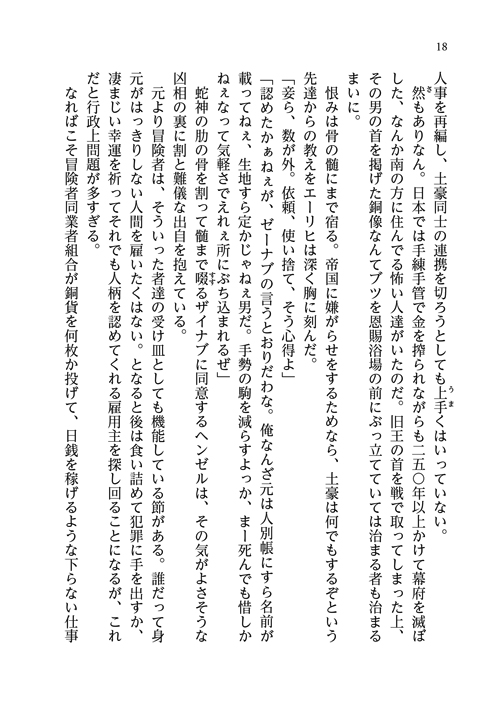 18
人事を再編し、土豪同士の連携を切ろうとしても上手くはいっていない。
うま
然もありなん。日本では手練手管で金を搾られながらも二五〇年以上かけて幕府を滅ぼ
さ
した、なんか南の方に住んでる怖い人達がいたのだ。旧王の首を戦で取ってしまった上、
その男の首を掲げた銅像なんてブツを恩賜浴場の前にぶっ立てていては治まる者も治まる
まいに。
恨みは骨の髄にまで宿る。帝国に嫌がらせをするためなら、土豪は何でもするぞという
先達からの教えをエーリヒは深く胸に刻んだ。
「妾ら、数が外。依頼、使い捨て、そう心得よ」
「認めたかぁねぇが、ゼーナブの言うとおりだわな。俺なんざ元は人別帳にすら名前が
載ってねぇ、生地すら定かじゃねぇ男だ。手勢の駒を減らすよっか、まー死んでも惜しか
ねぇなって気軽さでえれぇ所にぶち込まれるぜ」
蛇神の肋の骨を割って髄まで啜るザイナブに同意するヘンゼルは、その気がよさそうな
すす
凶相の裏に割と難儀な出自を抱えている。
元より冒険者は、そういった者達の受け皿としても機能している節がある。誰だって身
元がはっきりしない人間を雇いたくはない。となると後は食い詰めて犯罪に手を出すか、
凄まじい幸運を祈ってそれでも人柄を認めてくれる雇用主を探し回ることになるが、これ
だと行政上問題が多すぎる。
なればこそ冒険者同業者組合が銅貨を何枚か投げて、日銭を稼げるような下らない仕事